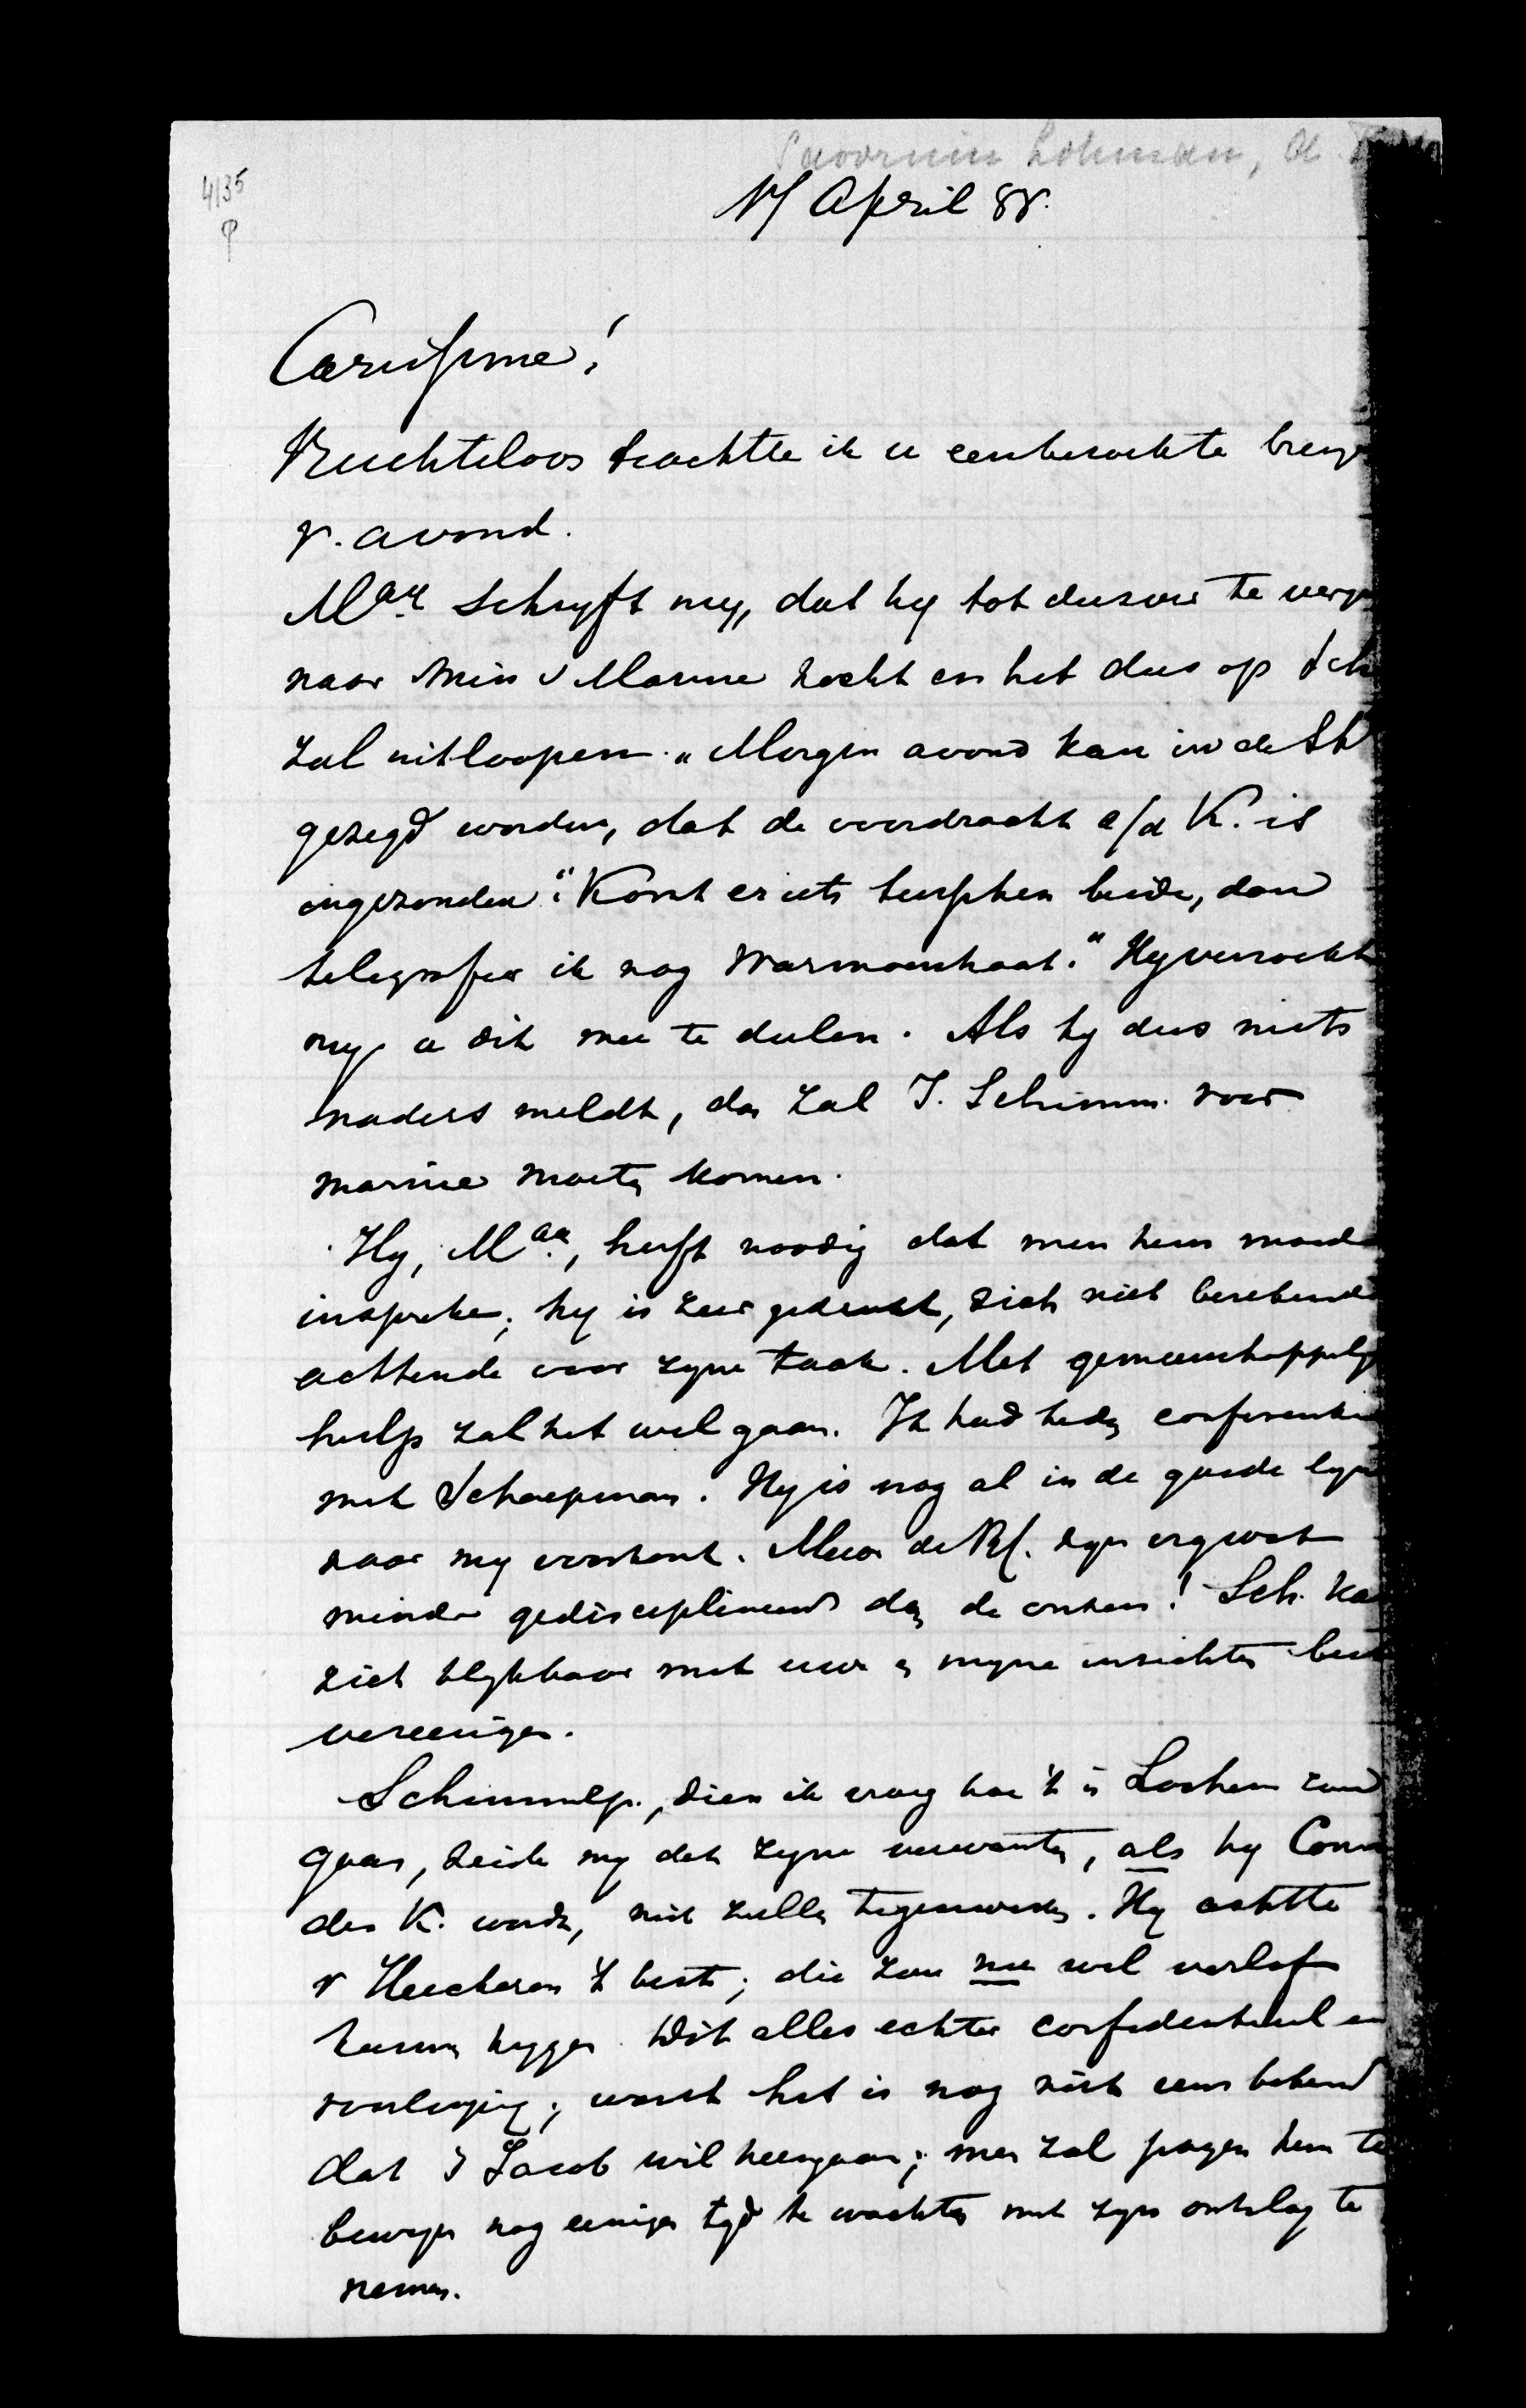 Savornin Lohman, A.
4135
17 April 88.
Carissime!
Vruchteloos trachtte ik u een bezoek te breng
v. avond.
M^ay schryft my, dat hy tot dusver te verge
naar Min v Marine zocht en het dus op Sch
zal uitloopen. "Morgen avond kan in de St
gezegd worden, dat de voordracht a/d K. is
ingezonden". "Komt er iets tusschen beide, dan
telegrafeer ik nog Warmoesstraat." Hy verzocht
my u dit mee te deelen. Als hy dus niets
naders meldt, dan zal J. Schimm. voor
marine moeten komen.
Hy, M^ay, heeft noodig dat men hem moed
inspreke; hy is zeer gedrukt, zich niet berekend
achtende voor zyne taak. Met gemeenschappelyk
hulp zal het wel gaan. Ik had heden conferentie
met Schaepman. Hy is nog al in de goede lyn
naar my voorkomt. Maar de RK. zyn erg wat
minder gedisciplineerd dan de onzen! Sch. ka
zich blykbaar met uwe en myne inzichten best
vereenigen.
Schimmelp., dien ik vroeg hoe 't in Lochem zou
gaan, zeide my dat zyne verwanten, als hy Comm
des K. wordt, niet zullen tegenwerken. Hy achtte
v Heeckeren 't best; die zou nu wel verlof
kunnen krygen. Dit alles echter confidentieel en
voorloopig; want het is nog niet eens bekend
dat Jacob wil heengaan; men zal pogen hem te
bewegen nog eenigen tyd te wachten met zyn ontslag te
nemen.